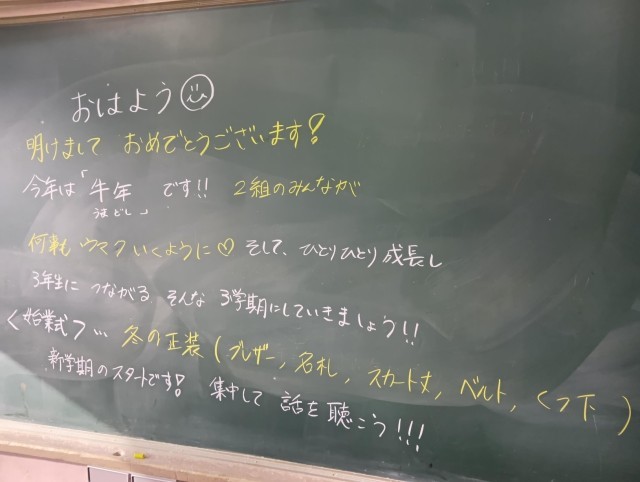 おはよう☺
明けまして おめでとうございます!
今年は「牛年 うまどし」です!! 2組のみんなが
何事も ウマクいくように♡ そして、ひとりひとり成長し
3年生に つながる そんな 3学期にしていきましょう!!
〈始業式〉… 冬の正装(ブレザー, 名札, スカート丈, ベルト, くつ下)
新学期のスタートです! 集中して 話を聴こう!!!